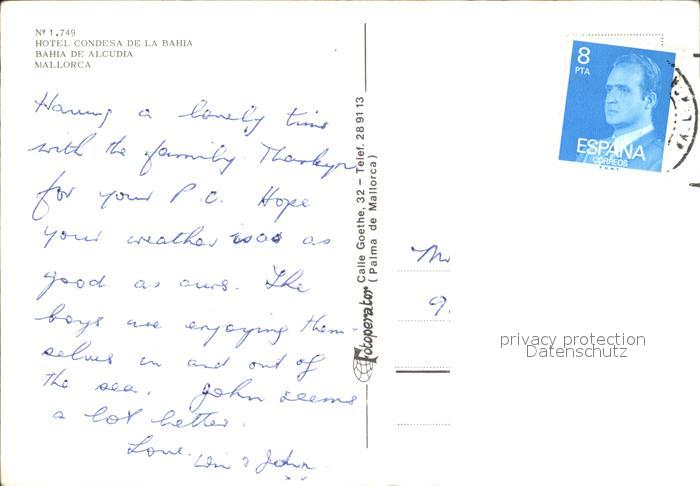 Nº 1.749
HOTEL CONDESA DE LA BAHIA
BAHIA DE ALCUDIA
MALLORCA
Having a lovely time
with the family. Thankyou
for your P.C. Hope
your weather was as
good as ours. The
boys are enjoying them-
selves in and out of
the sea. John seems
a lot better.
Love. Win & John.
x x
Fotoperator Calle Goethe, 32 – Telef. 28 91 13
(Palma de Mallorca)
8
PTA
ESPAÑA
CORREOS
privacy protection
Datenschutz